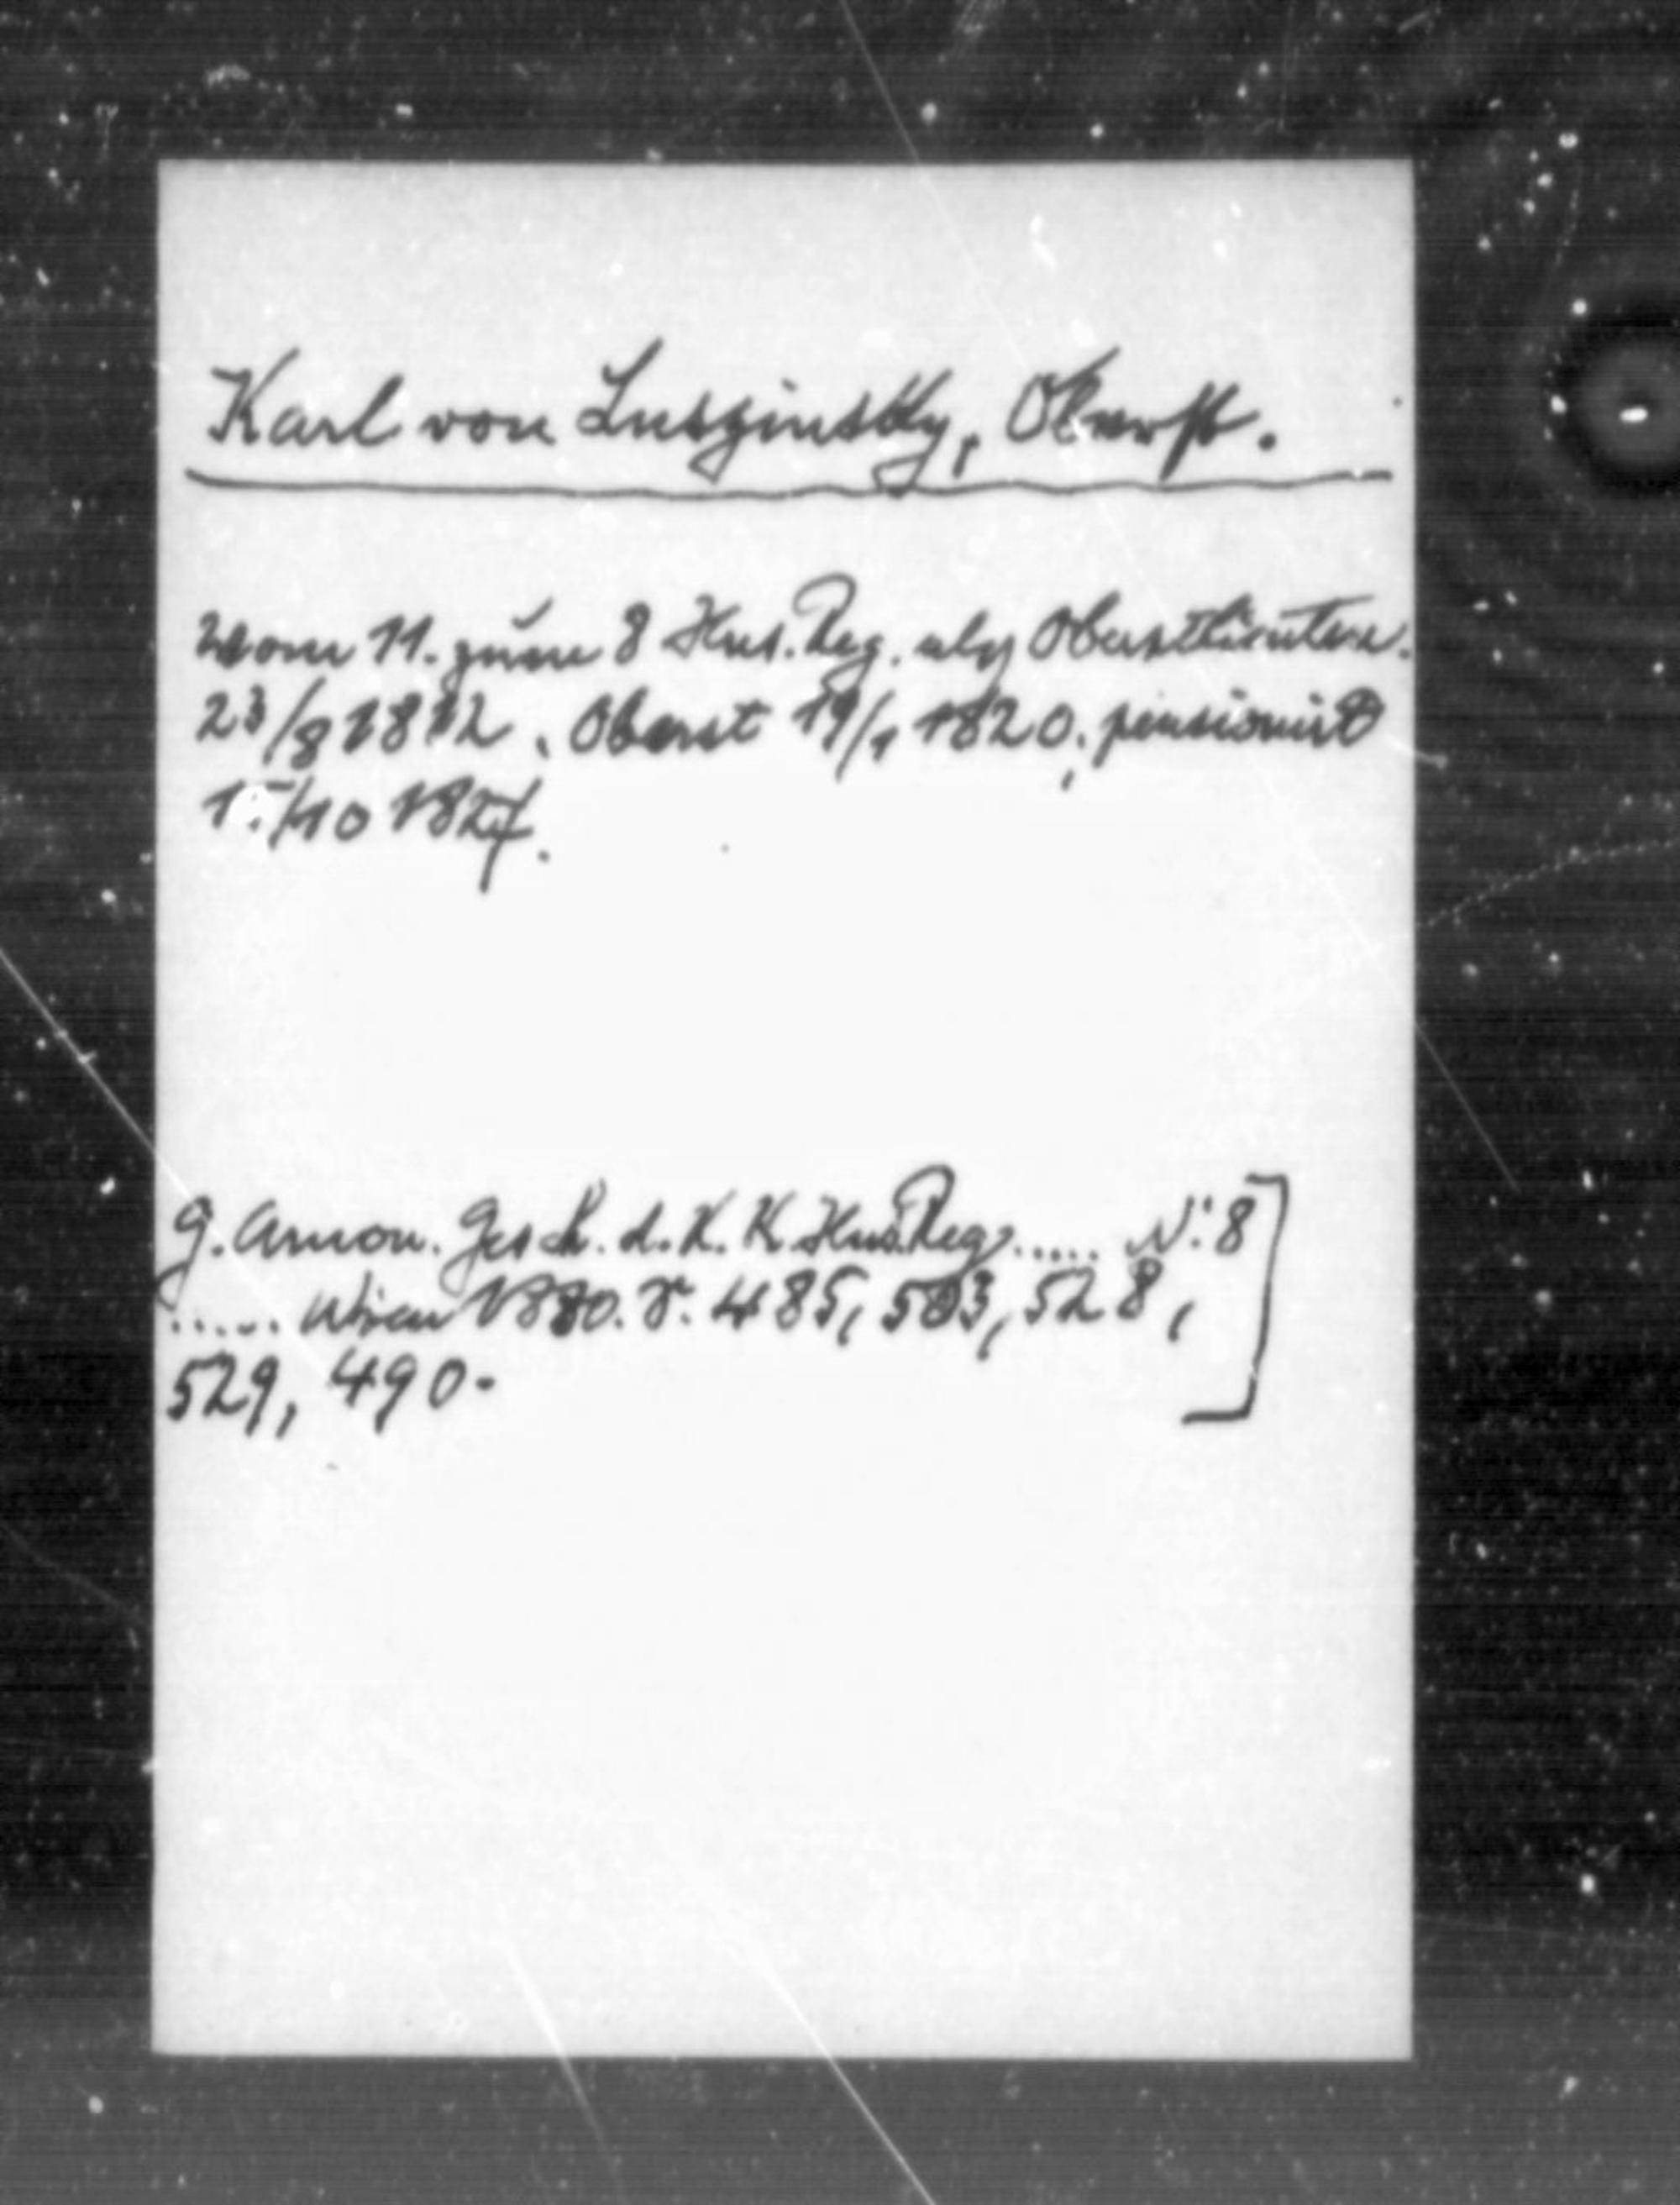 Karl von Luszinsky, Oberst.
vom 11. zum 8 Hus. Reg. als Oberstlieuten.
23/8 1812, Oberst 19/1 1820, pensionirt
1./10 1827.
G. Amon. Gesch. d. K. K. Hus. Reg..... N: 8
..... Wien 1880. S. 485, 503, 528,
529, 490.